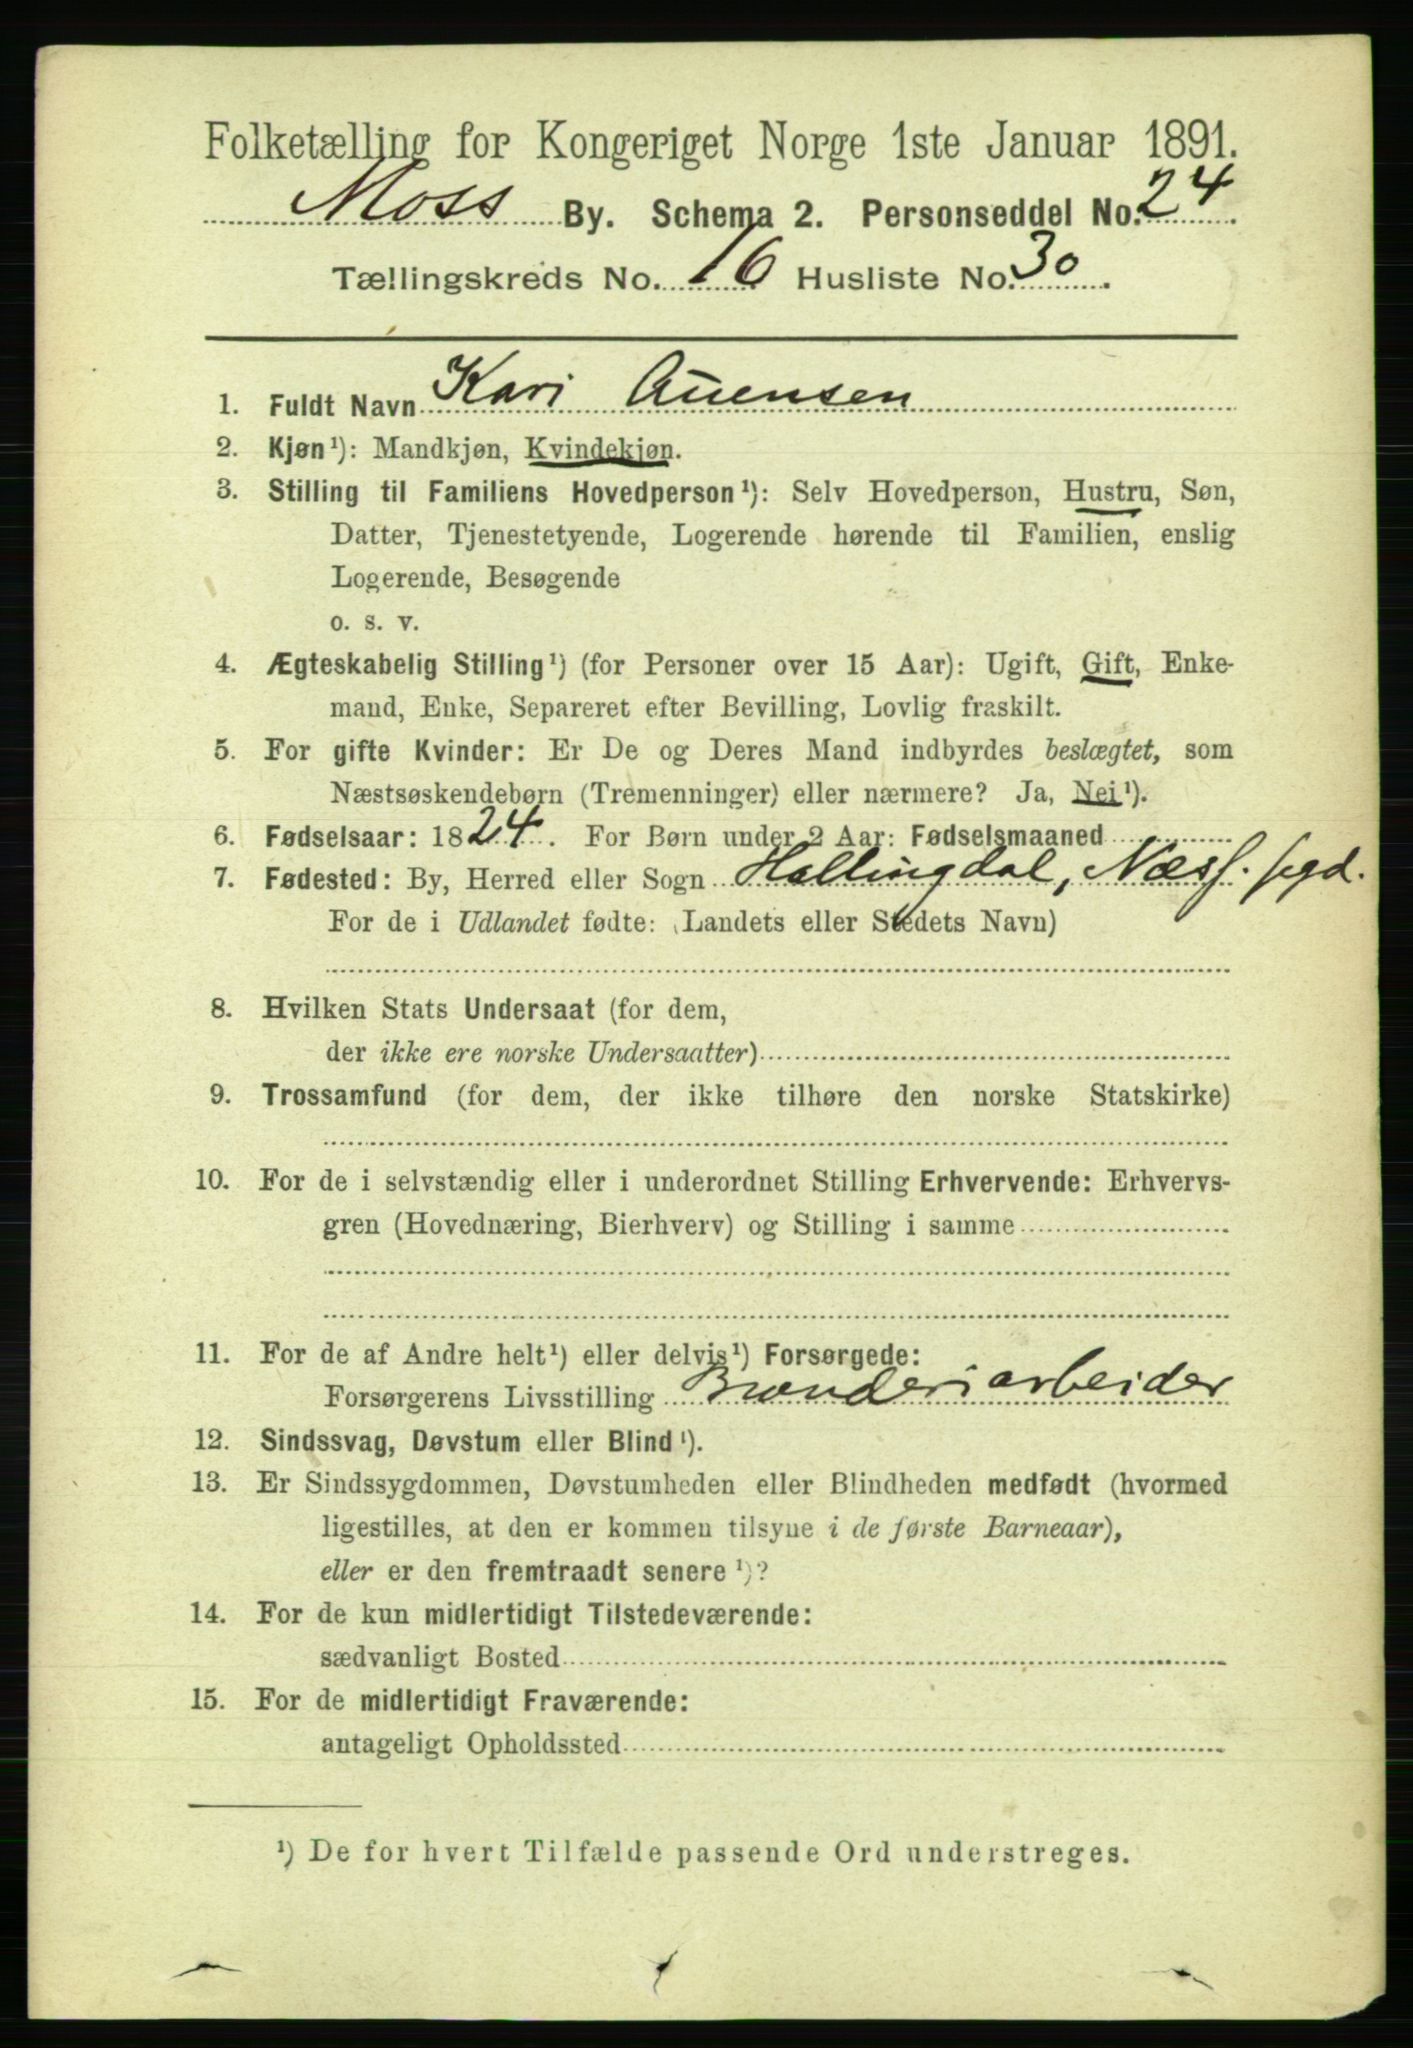 Folketælling for Kongeriget Norge 1ste Januar 1891.
Moss By. Schema 2. Personseddel No. 24
Tællingskreds No. 16 Husliste No. 30.
1. Fuldt Navn Kari Auensen
2. Kjøn¹): Mandkjøn, Kvindekjøn.
3. Stilling til Familiens Hovedperson¹): Selv Hovedperson, Hustru, Søn,
Datter, Tjenestetyende, Logerende hørende til Familien, enslig
Logerende, Besøgende
o. s. v.
4. Ægteskabelig Stilling¹) (for Personer over 15 Aar): Ugift, Gift, Enke-
mand, Enke, Separeret efter Bevilling, Lovlig fraskilt.
5. For gifte Kvinder: Er De og Deres Mand indbyrdes beslægtet, som
Næstsøskendebørn (Tremenninger) eller nærmere? Ja, Nei¹).
6. Fødselsaar: 1824. For Børn under 2 Aar: Fødselsmaaned
7. Fødested: By, Herred eller Sogn Hallingdal, Næss.
For de i Udlandet fødte: (Landets eller Stedets Navn)
8. Hvilken Stats Undersaat (for dem,
der ikke ere norske Undersaatter)
9. Trossamfund (for dem, der ikke tilhøre den norske Statskirke)
10. For de i selvstændig eller i underordnet Stilling Erhvervende: Erhvervs-
gren (Hovednæring, Bierhverv) og Stilling i samme
11. For de af Andre helt¹) eller delvis¹) Forsørgede:
Forsørgerens Livsstilling Brænderiarbeider
12. Sindssvag, Døvstum eller Blind¹).
13. Er Sindssygdommen, Døvstumheden eller Blindheden medfødt (hvormed
ligestilles, at den er kommen tilsyne i de første Barneaar),
eller er den fremtraadt senere¹)?
14. For de kun midlertidigt Tilstedeværende:
sædvanligt Bosted
15. For de midlertidigt Fraværende:
antageligt Opholdssted
¹) De for hvert Tilfælde passende Ord understreges.